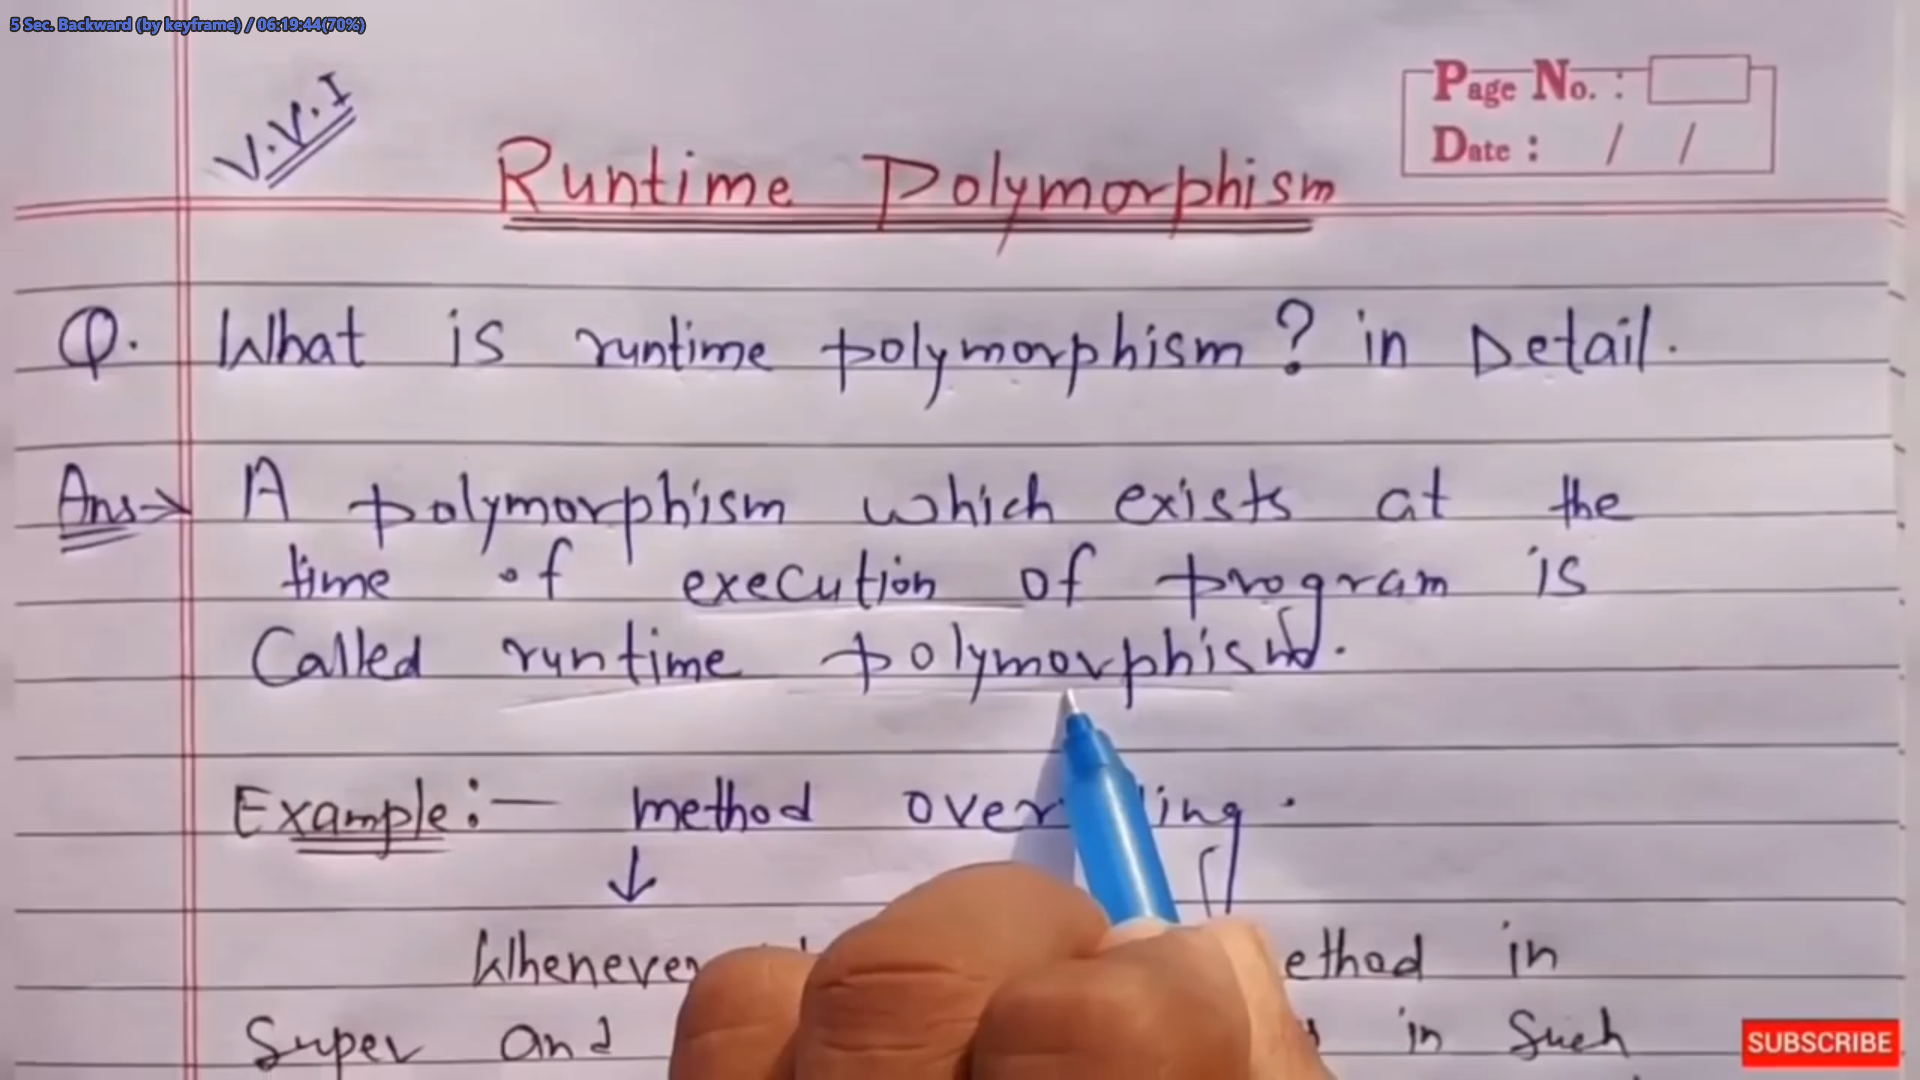 5 Sec. Backward (by keyframe) / 06:19:44(70%)
V.V.I
Page No. :
Date : / /
Runtime Polymorphism
Q. What is runtime polymorphism? in Detail.
Ans→ A polymorphism which exists at the
time of execution of program is
Called runtime polymorphism.
Example:— method
Whenever in
Super and in Such
SUBSCRIBE